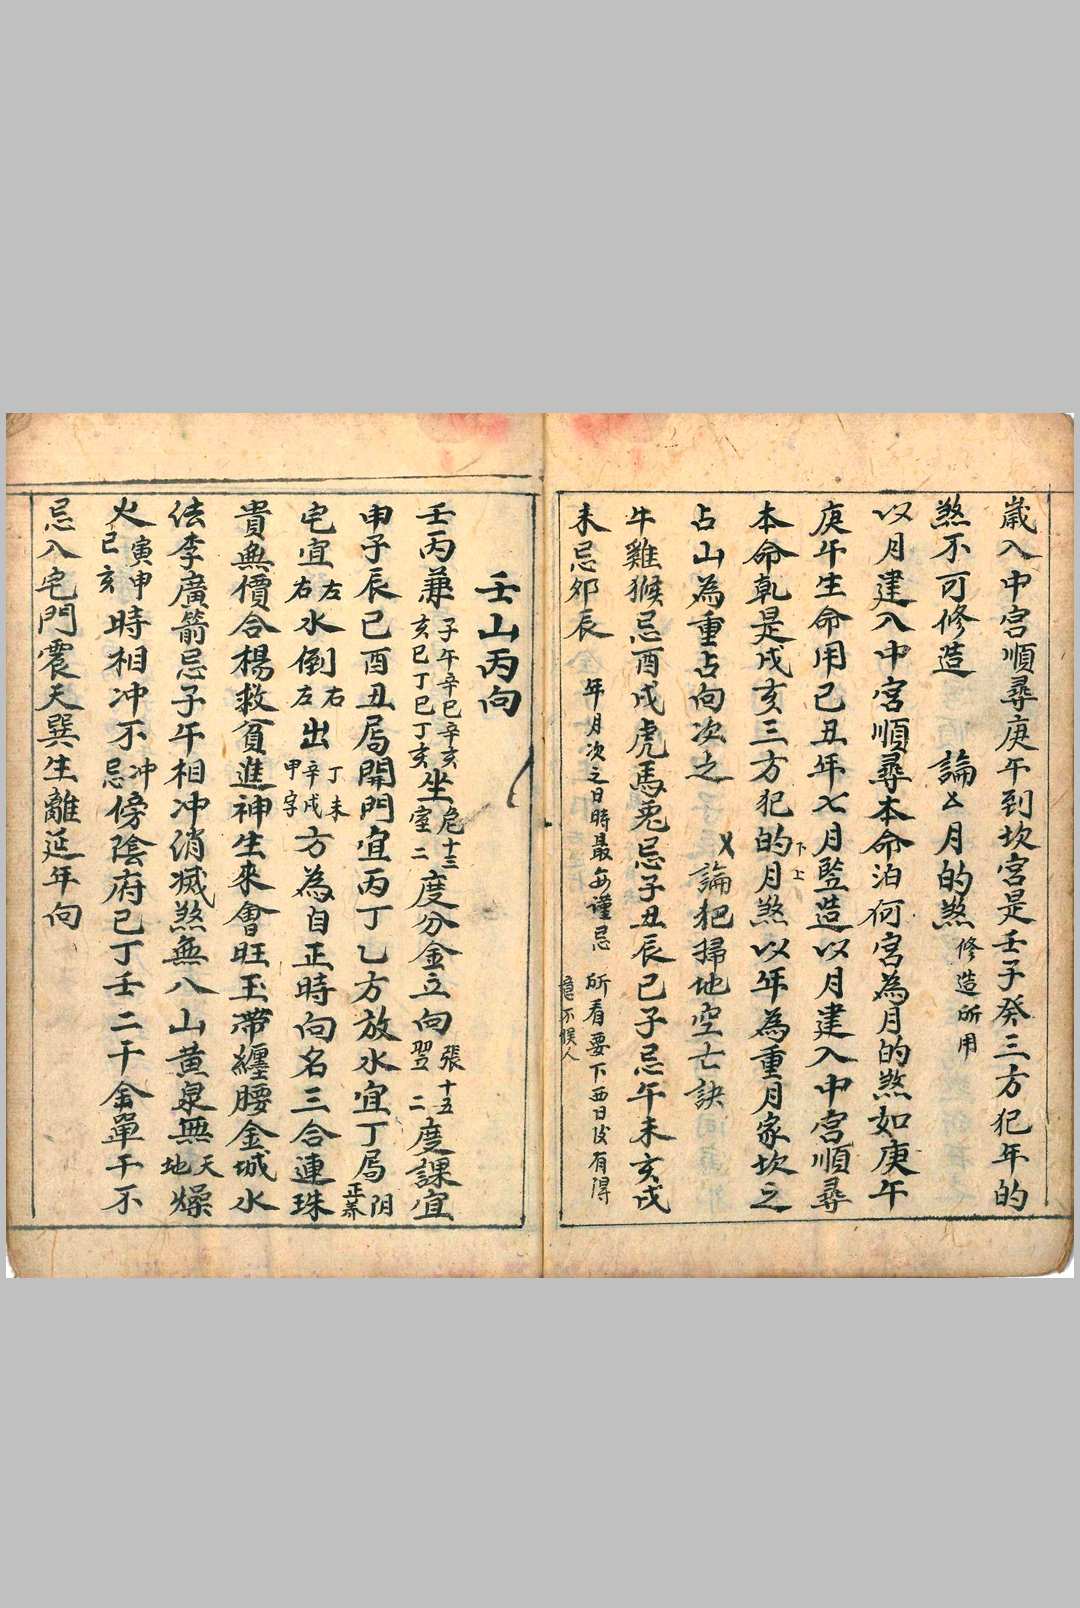 歲入中宮順尋庚午到坎宮是壬子癸三方犯年的
煞不可修造 論月的煞修造所用
以月建入中宮順尋本命泊何宮為月的煞如庚午
庚午生命用己丑年七月監造以月建入中宮順尋
本命乾是戌亥三方犯的月煞以年為重月家坎之
下上
占山為重占向次之 論犯掃地空亡訣
牛雞猴忌酉戌虎馬兎忌子丑辰巳子忌午未亥戌
未忌卯辰 年月次之日時最每謹忌 所看要下西日伐有得
不悞人
壬山丙向
壬丙兼子午辛巳辛亥亥巳丁巳丁亥坐危十三室二度分金立向張十五翌二度課宜
申子辰巳酉丑局開門宜丙丁乙方放水宜丁局阴
宅宜左右水倒右左出丁未辛戌甲字方為自正時向名三合連珠
貴無價合楊救貧進神生來會旺玉帶纏腰金城水
法李廣箭忌子午相冲消滅煞無八山黄泉無天地燥
火寅申己亥時相冲不冲忌傍陰府已丁壬二干金單干不
忌入宅門震天巽生離延年向